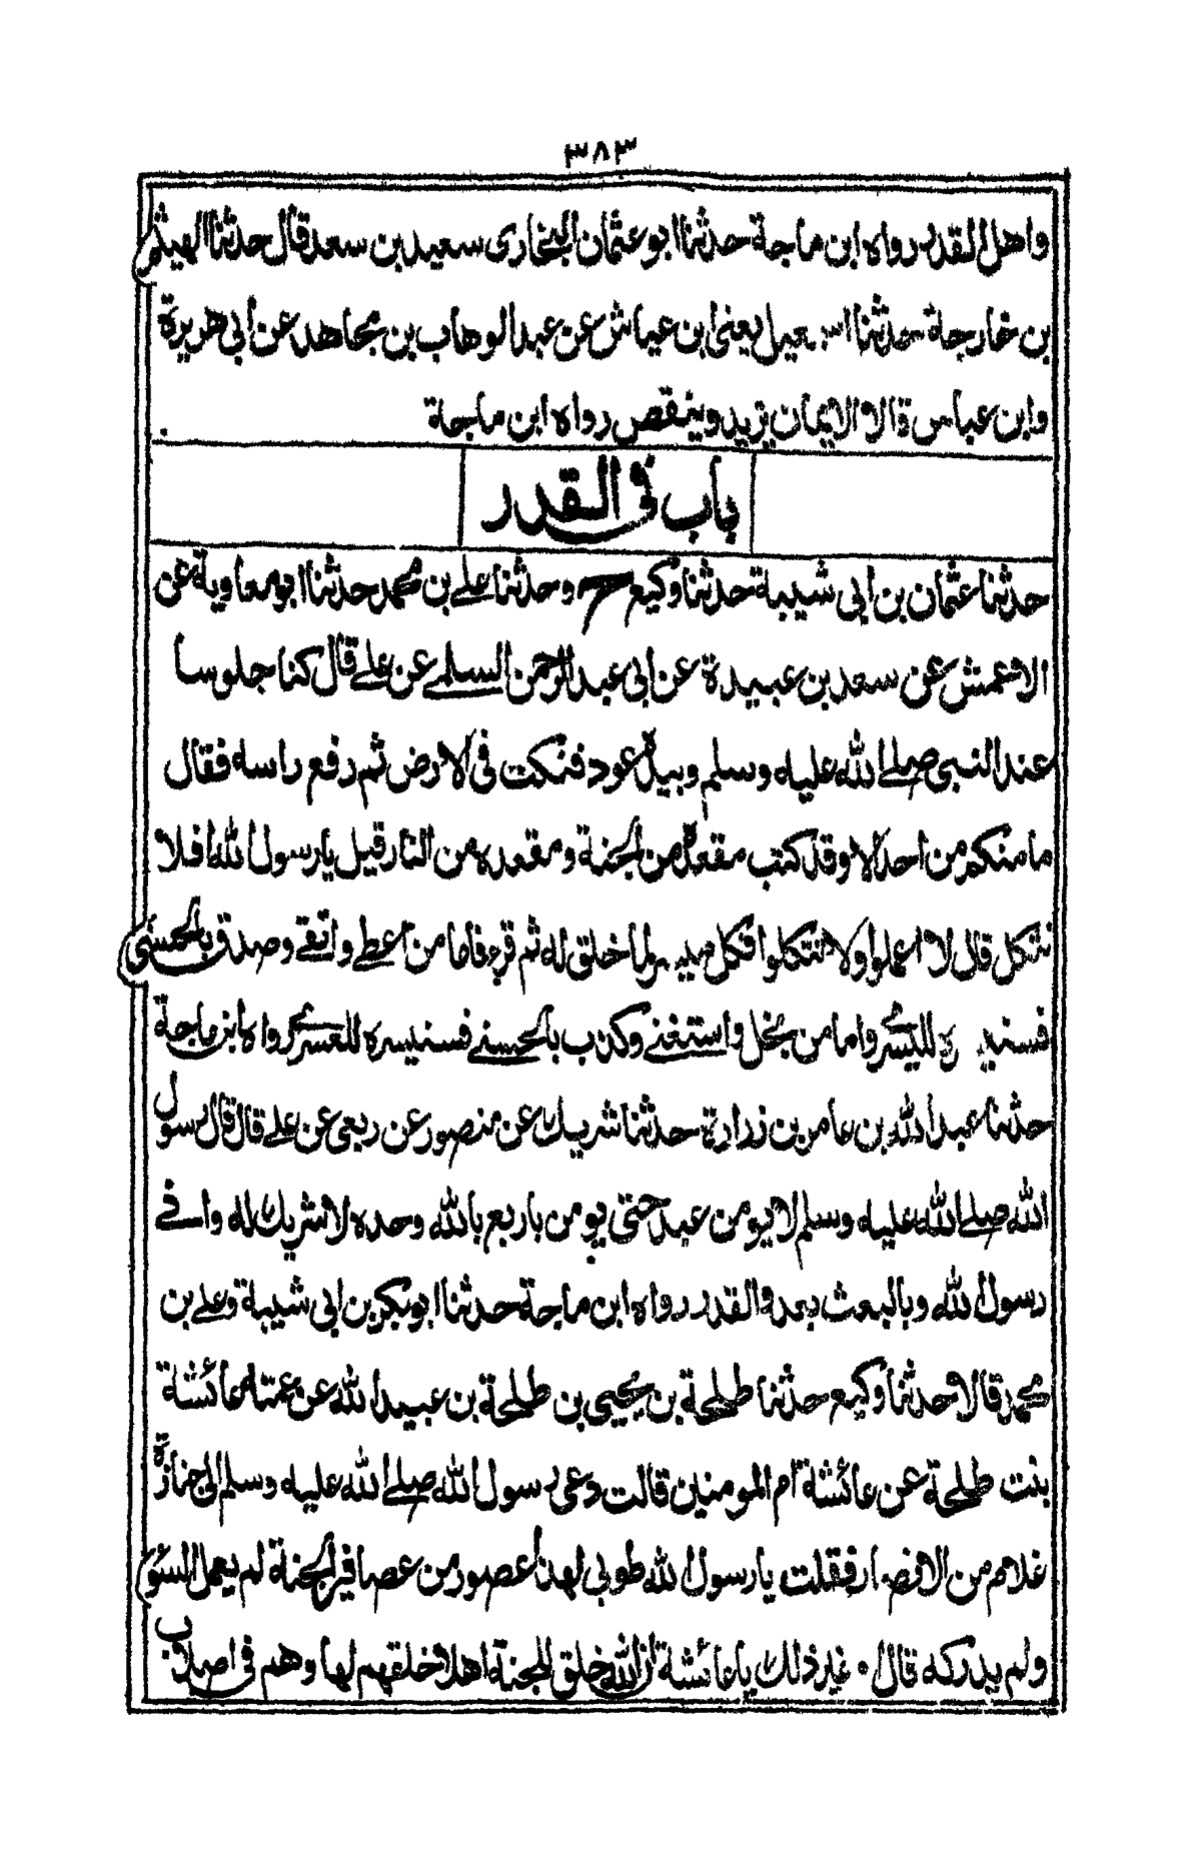 ٣٨٣
واهل القدر رواه ابن ماجة حدثنا ابو عثمان البخاري سعيد بن سعد قال حدثنا الهيثم
بن خارجة حدثنا اسمعيل يعني ابن عياش عن عبد الوهاب بن مجاهد عن ابي هريرة
وابن عباس قالا الايمان يزيد وينقص رواه ابن ماجة
باب في القدر
حدثنا عثمان بن ابي شيبة حدثنا وكيع ح وحدثنا علي بن محمد حدثنا ابو معاوية عن
الاعمش عن سعد بن عبيدة عن ابي عبد الرحمن السلمي عن علي قال كنا جلوسا
عند النبي صلى الله عليه وسلم وبيده عود فنكت في الارض ثم رفع راسه فقال
ما منكم من احد الا وقد كتب مقعده من الجنة ومقعده من النار قيل يا رسول الله افلا
نتكل قال لا اعملوا ولا تتكلوا فكل ميسر لما خلق له ثم قرء فاما من اعطى واتقى وصدق بالحسنى
فسنيسره لليسرى واما من بخل واستغنى وكذب بالحسنى فسنيسره للعسرى رواه ابن ماجة
حدثنا عبد الله بن عامر بن زرارة حدثنا شريك عن منصور عن ربعي عن علي قال قال رسول
الله صلى الله عليه وسلم لا يومن عبد حتى يومن باربع بالله وحده لا شريك له واني
رسول الله وبالبعث بعد والقدر رواه ابن ماجة حدثنا ابو بكر بن ابي شيبة وعلي بن
محمد قالا حدثنا وكيع حدثنا طلحة بن يحيى بن طلحة بن عبيد الله عن عمته عائشة
بنت طلحة عن عائشة ام المومنين قالت دعي رسول الله صلى الله عليه وسلم الى جنازة
غلام من الانصار فقلت يا رسول الله طوبى لهذا عصفور من عصافير الجنة لم يعمل السوء
ولم يدركه قال او غير ذلك يا عائشة ان الله خلق للجنة اهلا خلقهم لها وهم في اصلاب